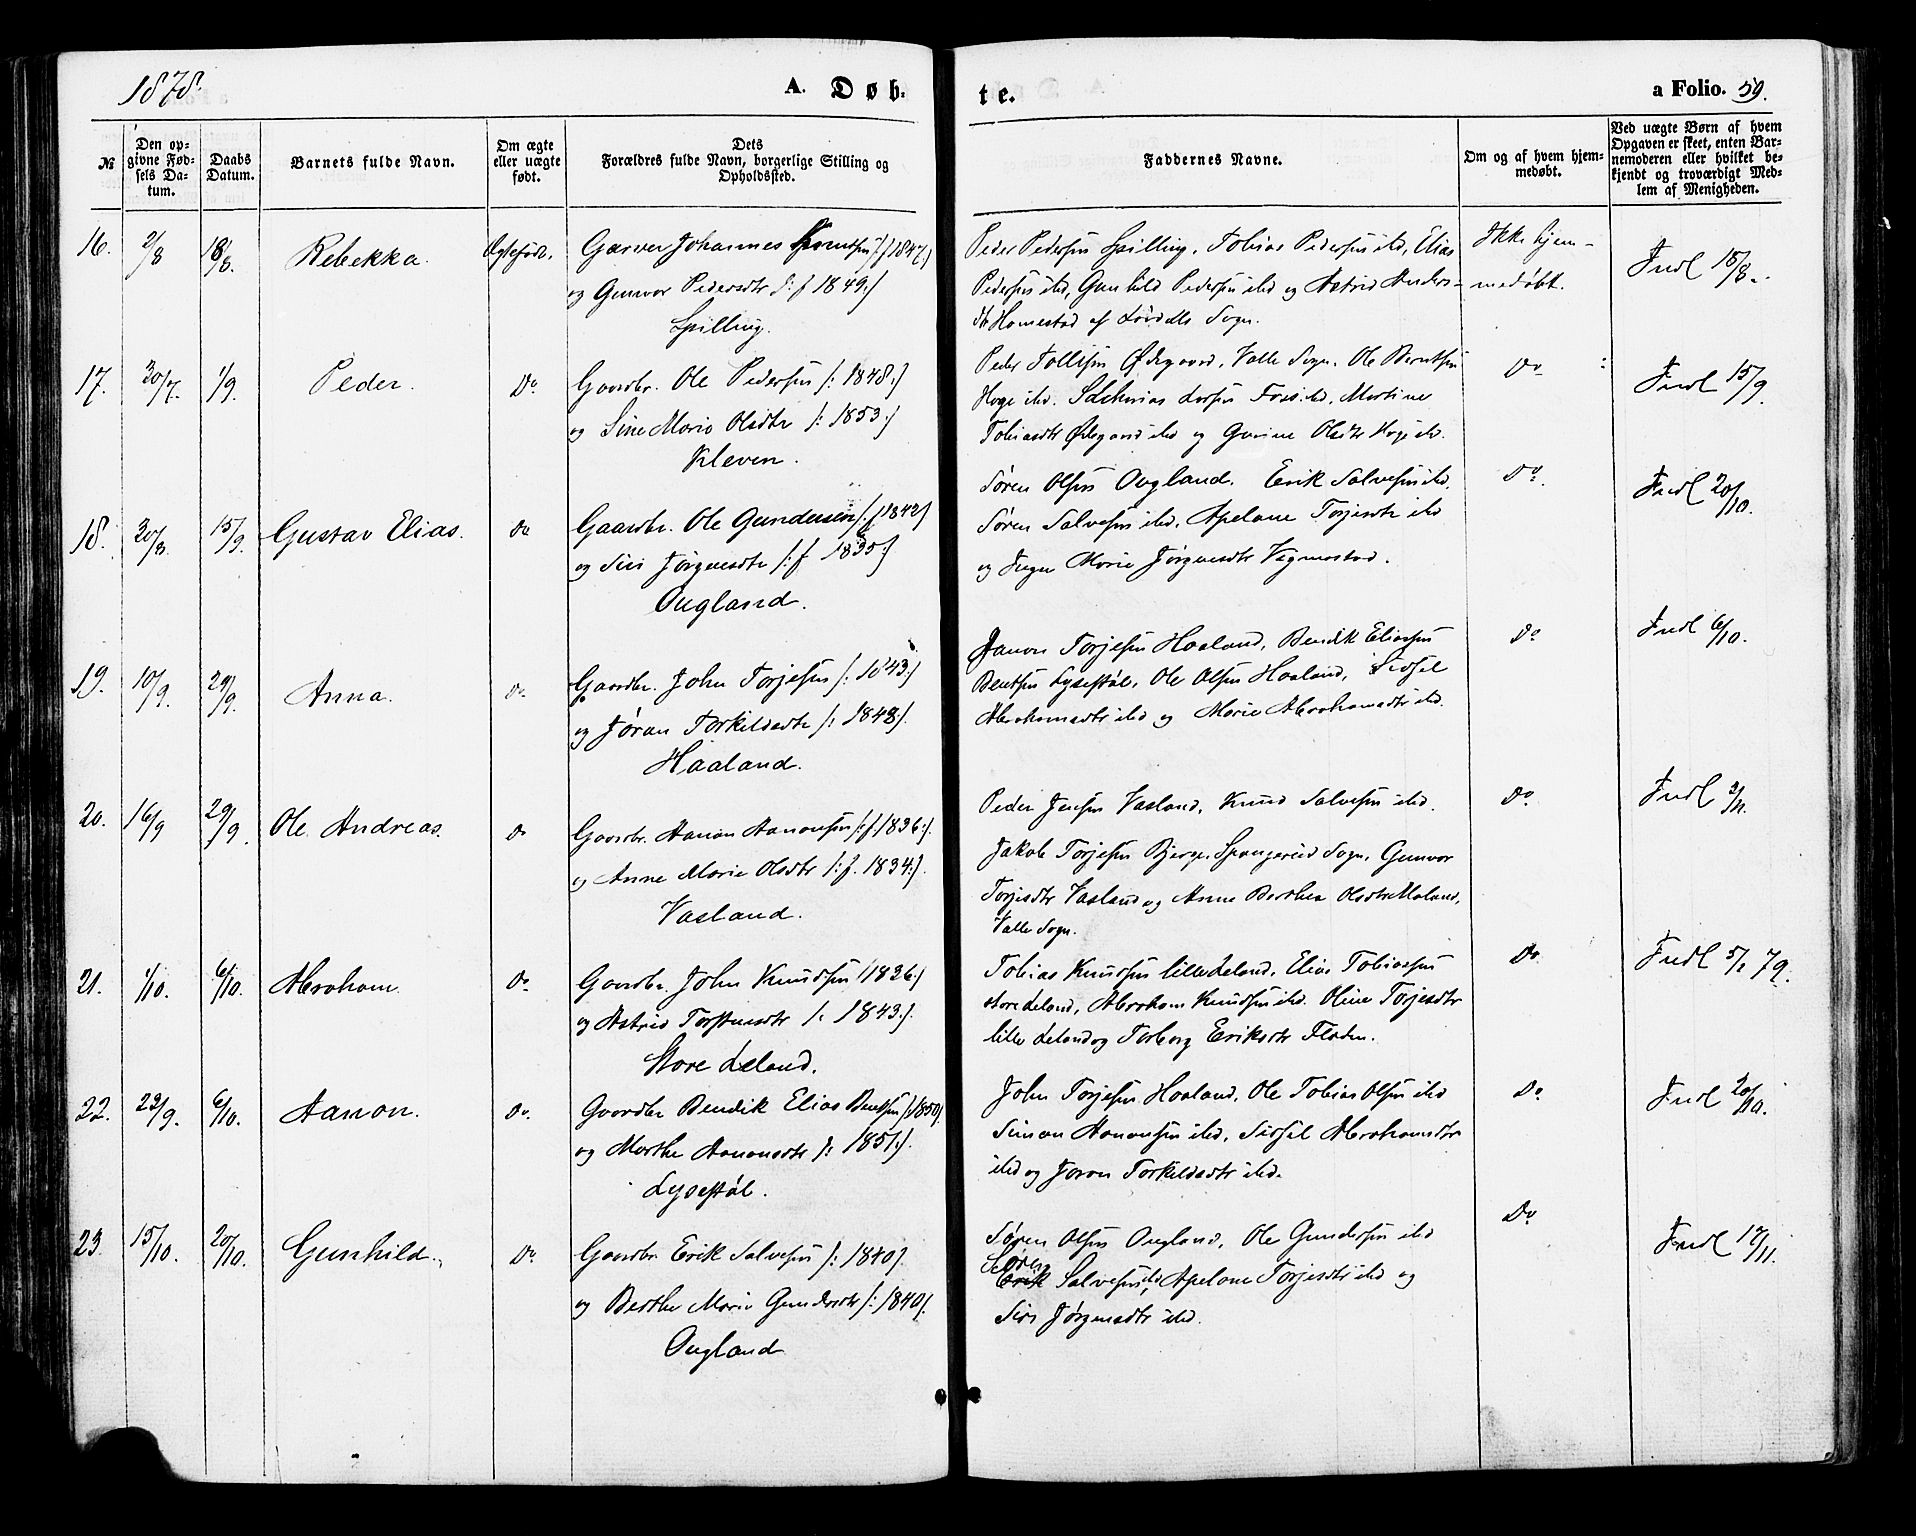 1878.
A. Døb-
te.
a Folio. 59.
№
Den op-
givne Fød-
sels Da-
tum.
Daabs
Datum.
Barnets fulde Navn.
Om ægte
eller uægte
født.
Dets
Forældres fulde Navn, borgerlige Stilling og
Opholdssted.
Faddernes Navne.
Om og af hvem hjem-
medøbt.
Ved uægte Børn af hvem
Opgaven er skeet, enten Bar-
nemoderen eller hvilket be-
kjendt og troværdigt Med-
lem af Menigheden.
16. 2/8 18/8. Rebekka. Ægtefødt.
Garver Johannes /:f 1847:/
og Gunvor Pedersdtr /:f 1849:/
Spilling.
Peder Pedersen Spilling, Tobias Pedersen ibd, Elias
Pedersen ibd, Gunhild Pedersen ibd og Astrid Anders-
dtr Homestad af Sogn.
Ikke hjem-
medøbt.
Indl 18/8.
17. 30/7. 1/9. Peder. Do
Gaardbr. Ole Pedersen /: 1848:/
og Sine Marie Olsdtr /: 1853:/
Kleven.
Peder Tollefsen Ødegaard, Valle Sogn. Ole Berntsen
Hoge ibd. Zakarias Larsen Foss ibd, Martine
Tobiasdtr Ødegaard ibd og Gurine Olsdtr Hoge ibd.
Do
Indl 15/9
18. 30/8. 15/9. Gustav Elias. Do
Gaardbr. Ole Gundersen /:f 1842/
og Siri Jørgensdtr /:f 1835:/
Ougland.
Søren Olsen Ougland. Erik Salvesen ibd.
Søren Salvesen ibd. Apelone Torjesdtr ibd
og Inger Marie Jørgensdtr Vigmostad.
Do.
Indl 20/10.
19. 10/9. 29/9. Anna. Do
Gaardbr. John Torjesen /: 1843:/
og Jøran Torkildsdtr /: 1848/.
Haaland.
Aanon Torjesen Haaland, Bendik Eliassen
Bentsen Lysestøl, Ole Olsen Haaland, Sidsel
Abrahamsdtr ibd og Marie Abrahamsdtr ibd.
Do
Indl 6/10.
20. 16/9 29/9. Ole Andreas. Do
Gaardbr. Aanon Aanonsen /:f 1836:/.
og Anne Marie Olsdtr /:f. 1834:/.
Vasland.
Peder Jensen Vasland, Knud Salvesen ibd.
Jakob Torjesen Bjerge, Spangereid Sogn, Gunvor
Torjesdtr Vasland og Anne Berthea Olsdtr Moland,
Valle Sogn.
Do
Indl 3/11.
21. 1/10. 6/10. Abraham. Do
Gaardbr. John Knudsen /1836:/
og Astrid Torstensdtr /: 1843:/.
Store Leland.
Tobias Knudsen lille Leland, Elias Tobiassen
store Leland, Abraham Knudsen ibd. Oline Torjesdtr
lille Leland og Torborg Eriksdtr Floden.
Do
Indl 5/1 79.
22. 22/9. 6/10. Aanon. Do
Gaardbr Bendik Elias Bentsen /:1850/
og Marthe Aanonsdtr /: 1851:/.
Lysestøl.
John Torjesen Haaland, Ole Tobias Olsen ibd
Simon Aanonsen ibd, Sidsel Abrahamsdtr
ibd og Jøran Torkildsdtr ibd.
Do
Indl 20/10.
23. 15/10. 20/10. Gunhild. Do
Gaardbr. Erik Salvesen /: 1840/.
og Berthe Marie Gundersdtr /: 1840/.
Ougland
Søren Olsen Ougland, Ole Gundersen ibd
Søren
Erik Salvesen ibd, Apelone Torjesdtr ibd og
Siri Jørgensdtr ibd.
Do
Indl 17/11.